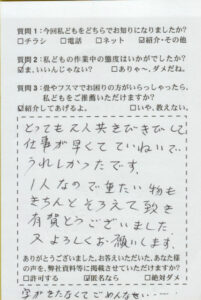 質問1:今回私どもをどちらでお知りになりましたか?
□チラシ □電話 □ネット ☑紹介・その他
質問2:私どもの作業中の態度はいかがでしたか?
☑ま、いいんじゃない? □ありゃ〜、ダメだね。
質問3:畳やフスマでお困りの方がいらっしゃったら、
私どもをご推薦いただけますか?
☑紹介してあげるよ。 □いや、教えない。
とっても2人共きびきびして
仕事が早くてていねいで、
うれしかったです。
1人なので重たい物も
きちんとそろえて致き
有賀とうございました
又よろしくお願いします。
ありがとうございました。お答えいただいた、あなた様
の声を、弊社資料等に掲載させていただけますか?
□許可する ☑匿名なら □絶対ダメ
字がきたなくてごめんなさい……